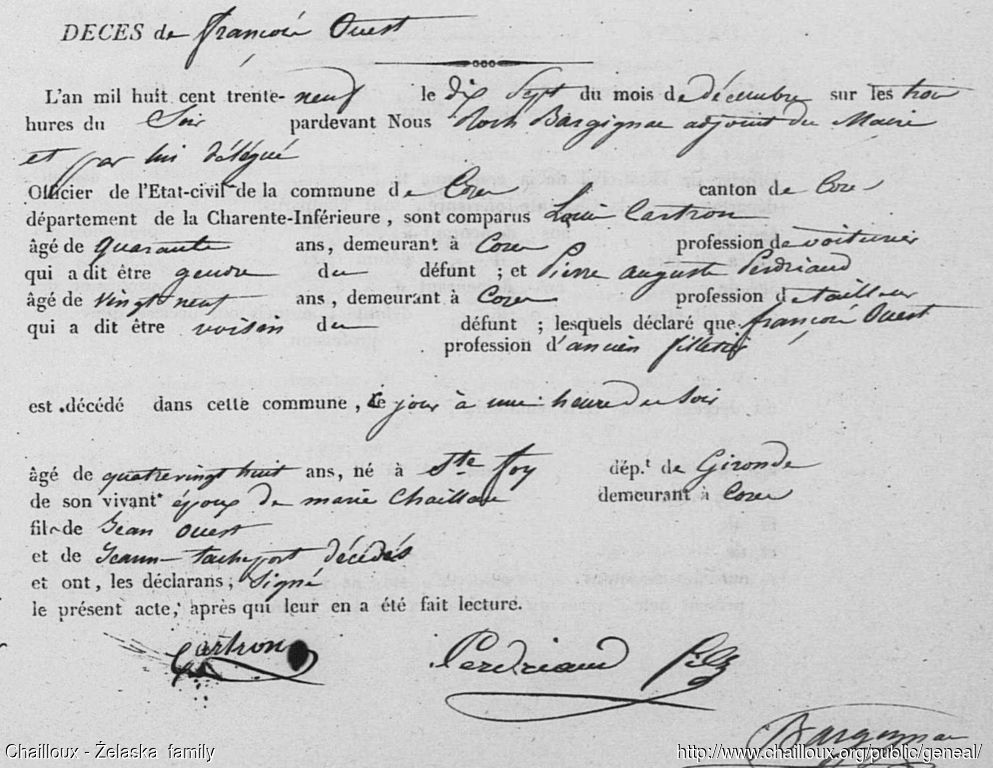 DECES de françois Ouest
L'an mil huit cent trente-neuf le dix Sept du mois de décembre sur les trois
hures du Soir pardevant Nous Roch Bargignac adjoint du Maire
et par lui délégué
Officier de l'Etat-civil de la commune de Coze canton de Coze
département de la Charente-Inférieure, sont comparus Louis Cartron
âgé de quarante ans, demeurant à Coze profession de voiturier
qui a dit être gendre du défunt ; et Pierre auguste Perdriaud
âgé de vingt neuf ans, demeurant à Coze profession de tailleur
qui a dit être voisin du défunt ; lesquels déclaré que françois Ouest
profession d'ancien filletier
est décédé dans cette commune, ce jour à une heure du Soir
âgé de quatrevingt huit ans, né à Ste foy dép.t de Gironde
de son vivant époux de marie Chaillou demeurant à Coze
fils de Jean Ouest
et de Jeanne décédés
et ont, les déclarans, Signé
le présent acte, après qui leur en a été fait lecture.
Cartron Perdriaud fils
Bargignac
Chailloux - Żelaska family http://www.chailloux.org/public/geneal/